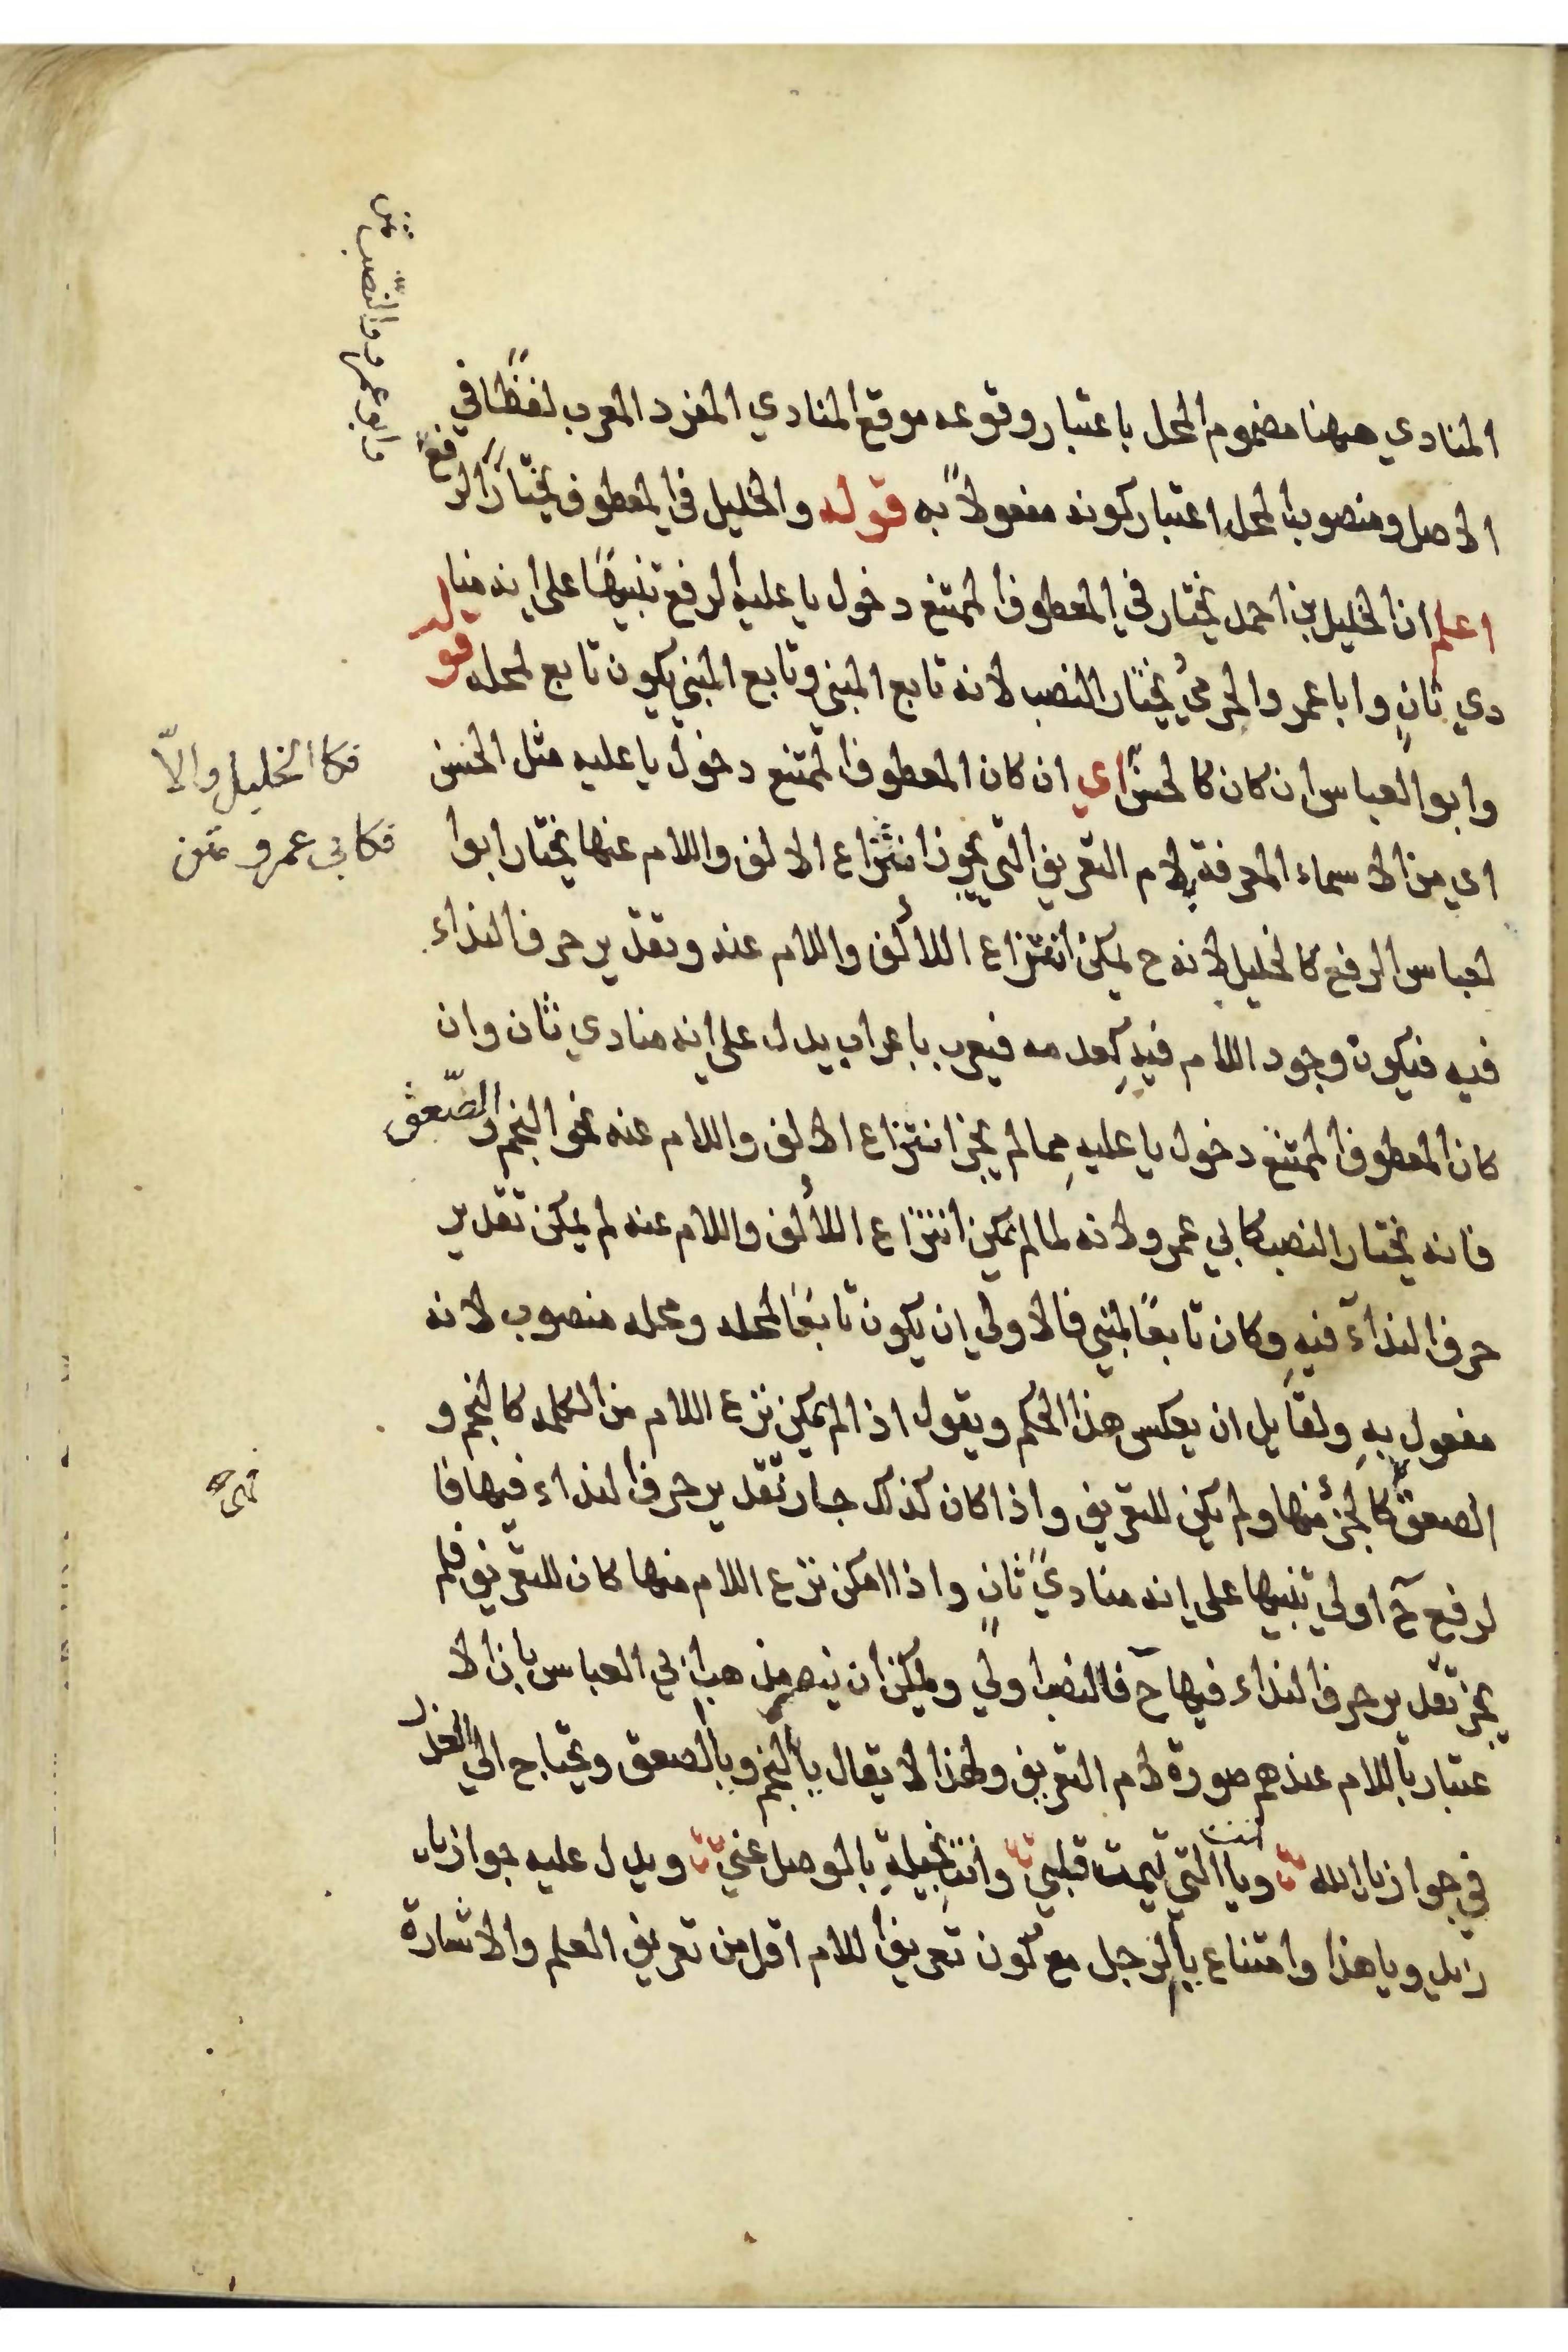 المنادي ههنا مضموم المحل باعتبار وقوعه موقع المنادي المفرد المعرب لفظًا في
الاصل ومنصوب المحل اعتبار كونه مفعولًا به قوله والخليل في المعطوف يختار الرفع
وابو عمرو النصب متن
اعلم ان الخليل بن احمد يختار في المعطوف الممتنع دخول يا عليه الرفع تنبيهًا على انه منا
دي ثانٍ وابا عمر والجرميُ يختار النصب لانه تابع المبني وتابع المبني يكون تابع لمحله قوله
وابو العباس ان كان كالحسن اي ان كان المعطوف الممتنع دخول يا عليه مثل الحسن
فكا الخليل والاّ
فكابي عمرو متن
اي من الاسماء المعرفة بلام التعريف التي يجوز انتزاع الالف واللام عنها يختار ابوا
لعباس الرفع كالخليل لانه ح يمكن انتزاع الالف واللام عنه وتقدير حرف النداء
فيه فيكون وجود اللام فيه كعدمه فيعرب باعراب يدل على انه منادي ثان وان
كان المعطوف الممتنع دخول يا عليه مما لم يجز انتزاع الالف واللام عنه نحو النجم والصّعق
فانه يختار النصب كابي عمرو لانه لما لم يمكن انتزاع الالف واللام عنه لم يمكن تقدير
حرف النداء فيه وكان تابعًا لمبني فالاولي ان يكون تابعًا لمحله ومحله منصوب لانه
مفعول به ولقايل ان يعكس هذا الحكم ويقول اذا لم يمكن نزع اللام من الكلمه كالنجم و
الصعق كالجزء منها ولم يكن للتعريف واذا كان كذلك جاز تقدير حرف النداء فيها فا
لرفع ح اولي تنبيها على انه مناديً ثانٍ واذا امكن نزع اللام منها كان للتعريف فلم
يجز تقدير حرف النداء فيها ح فالنصب اولي ويمكن ان مذهب ابي العباس بان الا
عتبار باللام عندهم صورة لام التعريف ولهذا لا يقال يا النجم ويا الصعق ويحتاج الي العذر
في جواز يا الله ويا التي تيمت قلبي وانت بخيلة بالوصل عني ويدل عليه جواز يا
زيد ويا هذا وامتناع يا الرجل مع كون تعريف اللام اقل من تعريف العلم والاشارة